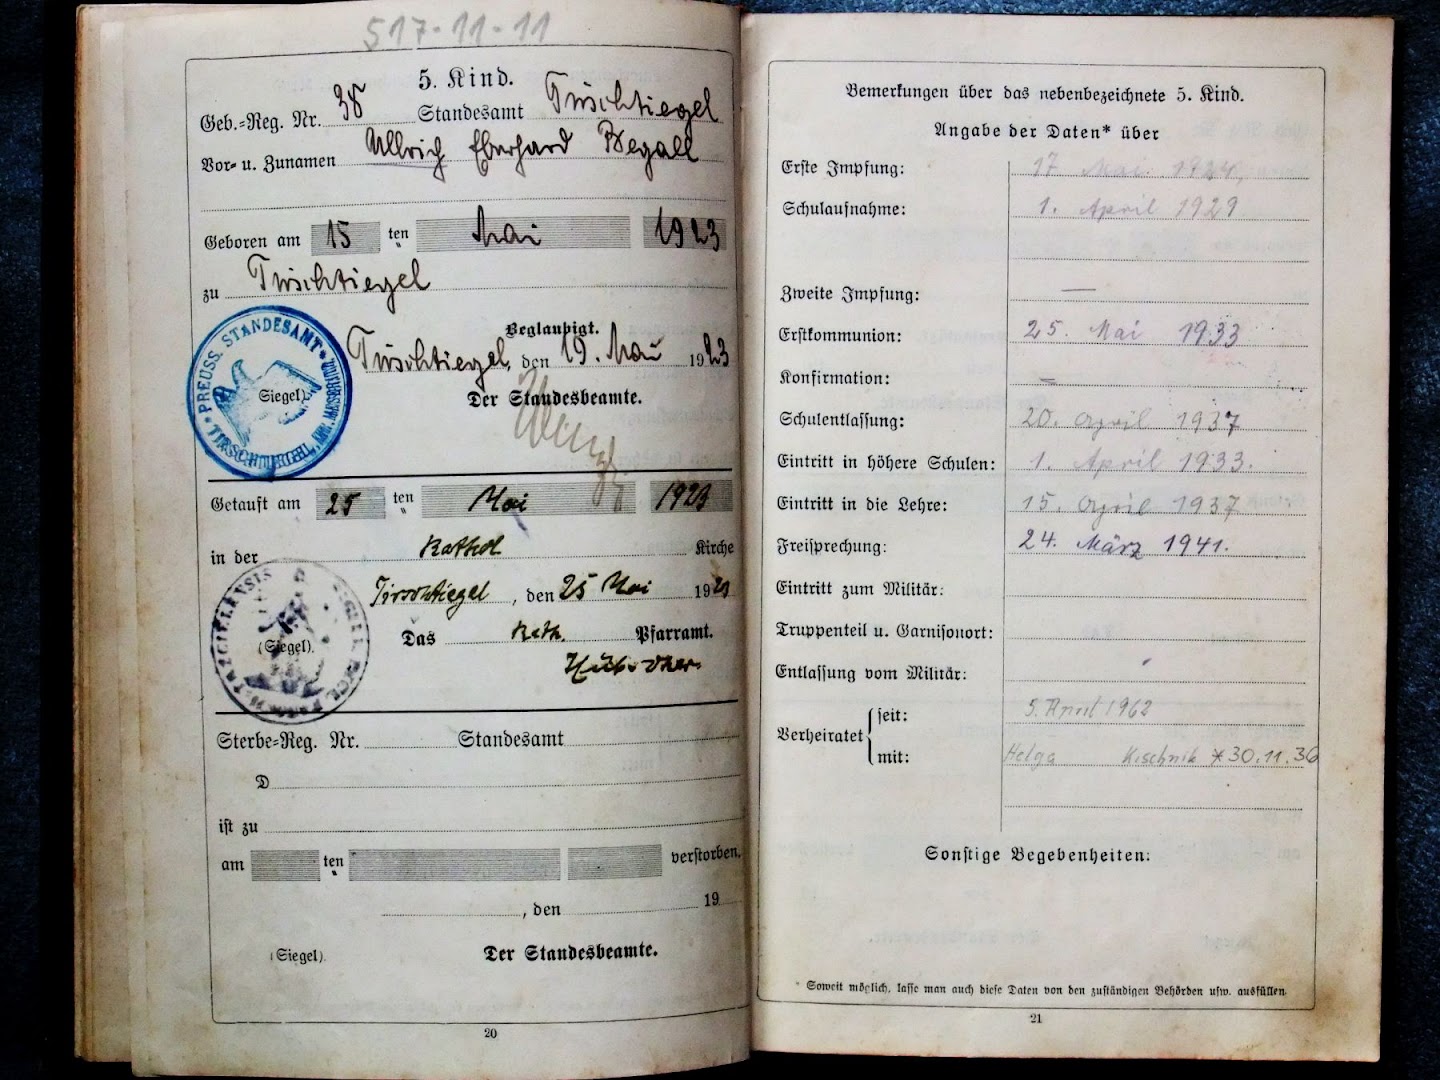 517-11-11
5. Kind.
Geb.-Reg. Nr. 38 Standesamt Tirschtiegel
Vor- u. Zunamen Ullrich Eberhard Begall
Geboren am 15 ten Mai 1923
zu Tirschtiegel
Beglaubigt.
Tirschtiegel, den 19. Mai 1923
PREUSS. STANDESAMT
(Siegel)
Der Standesbeamte.
Getauft am 25 ten Mai 1923
in der Kathol Kirche
Tirschtiegel, den 25 Mai 1923
(Siegel).
Das Kath. Pfarramt.
Sterbe-Reg. Nr. Standesamt
D
ist zu
am ten verstorben.
, den 19
(Siegel).
Der Standesbeamte.
20
Bemerkungen über das nebenbezeichnete 5. Kind.
Angabe der Daten* über
Erste Impfung: 17 Mai 1924,
Schulaufnahme: 1. April 1929
Zweite Impfung: —
Erstkommunion: 25. Mai 1933
Konfirmation: —
Schulentlassung: 20. April 1937
Eintritt in höhere Schulen: 1. April 1933.
Eintritt in die Lehre: 15. April 1937
Freisprechung: 24. März 1941.
Eintritt zum Militär:
Truppenteil u. Garnisonort:
Entlassung vom Militär:
Verheiratet
seit: 5. April 1962
mit: Helga Kischnik *30.11.36
Sonstige Begebenheiten:
* Soweit möglich, lasse man auch diese Daten von den zuständigen Behörden usw. ausfüllen.
21